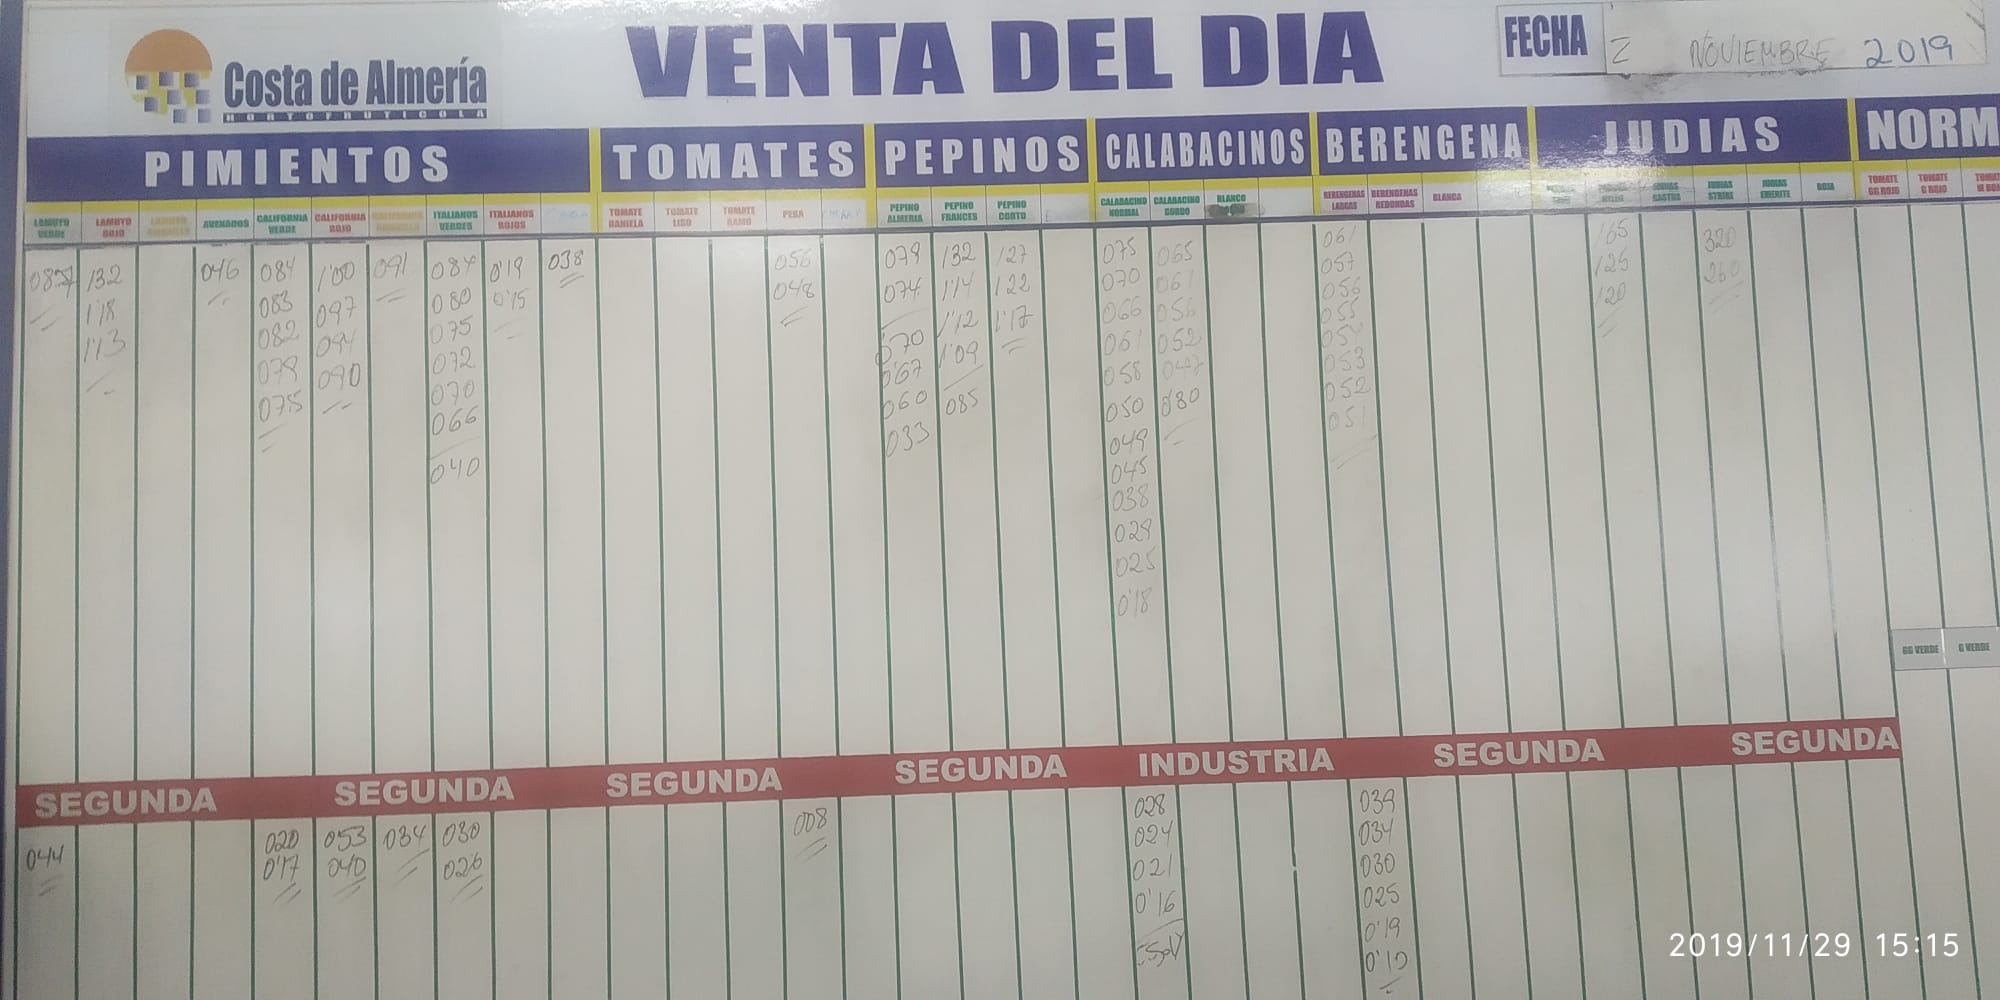 Costa de Almería
HORTOFRUTICOLA
VENTA DEL DIA
FECHA
2 NOVIEMBRE 2019
PIMIENTOS
TOMATES
PEPINOS
CALABACINOS
BERENGENA
JUDIAS
NORM
LAMUYO VERDE
LAMUYO ROJO
ASURADOS
CALIFORNIA VERDE
CALIFORNIA ROJO
CALIFORNIA AMARILLO
ITALIANOS VERDES
ITALIANOS ROJOS
TOMATE DANIELA
TOMATE LISO
TOMATE RAMO
PERA
PEPINO ALMERIA
PEPINO FRANCES
PEPINO CORTO
CALABACINO NORMAL
CALABACINO GORDO
BLANCO
BERENGENAS LARGAS
BERENGENAS REDONDAS
BLANCA
JUDIAS STRIKE
JUDIAS EMERITE
ROJA
TOMATE GG ROJO
TOMATE G ROJO
132
1'18
1'13
046
084
083
082
079
075
1'00
097
094
090
091
084
080
075
072
070
066
040
0'19
0'15
038
056
048
079
074
070
067
060
033
132
1'14
1'12
1'09
085
127
122
1'17
075
070
066
061
058
050
049
045
038
029
025
0'18
065
061
056
052
047
061
057
056
055
053
052
051
165
125
120
320
260
GG VERDE
G VERDE
SEGUNDA
SEGUNDA
SEGUNDA
SEGUNDA
INDUSTRIA
SEGUNDA
SEGUNDA
044
020
0'17
053
040
034
030
026
008
028
024
021
0'16
039
034
030
025
0'19
2019/11/29 15:15